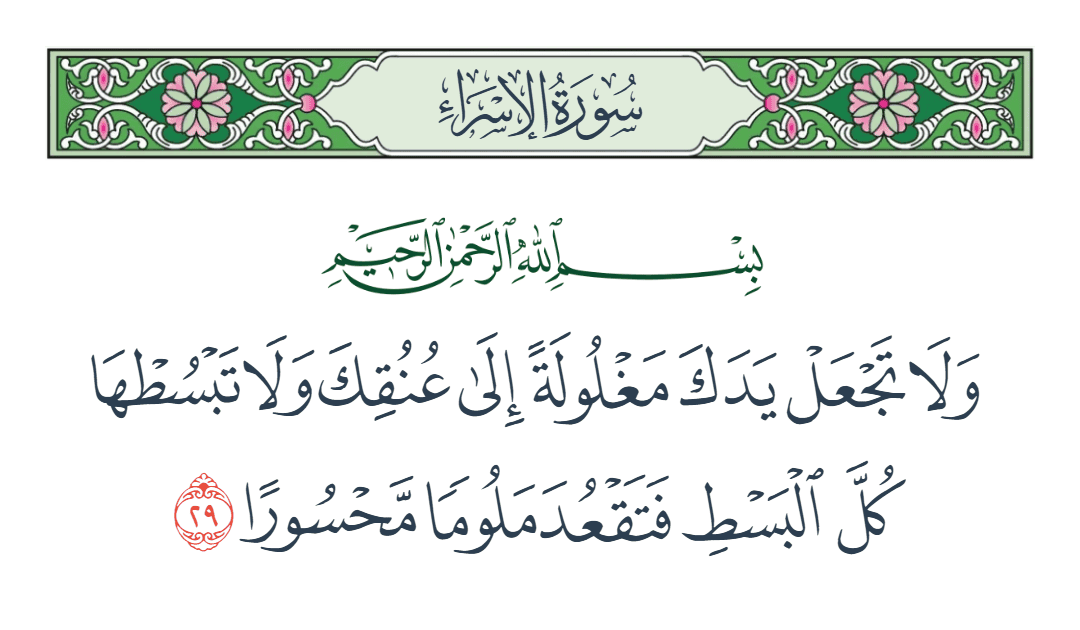 سُورَةُ الإِسْرَاءِ
بِسْمِ ٱللَّهِ ٱلرَّحْمَٰنِ ٱلرَّحِيمِ
وَلَا تَجْعَلْ يَدَكَ مَغْلُولَةً إِلَىٰ عُنُقِكَ وَلَا تَبْسُطْهَا
كُلَّ ٱلْبَسْطِ فَتَقْعُدَ مَلُومًا مَّحْسُورًا ٢٩